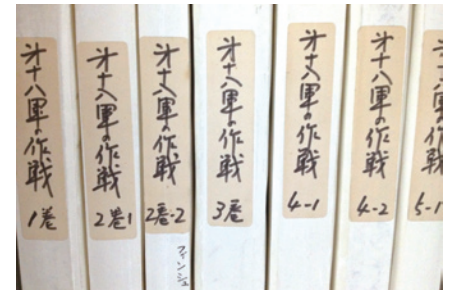 㐧十八軍の作戦
1巻
㐧十八軍の作戦
2巻1
㐧十八軍の作戦
2巻-2
フィンシュ
㐧十八軍の作戦
3巻
㐧十八軍の作戦
4-1
㐧十八軍の作戦
4-2
㐧十八軍の作戦
5-1